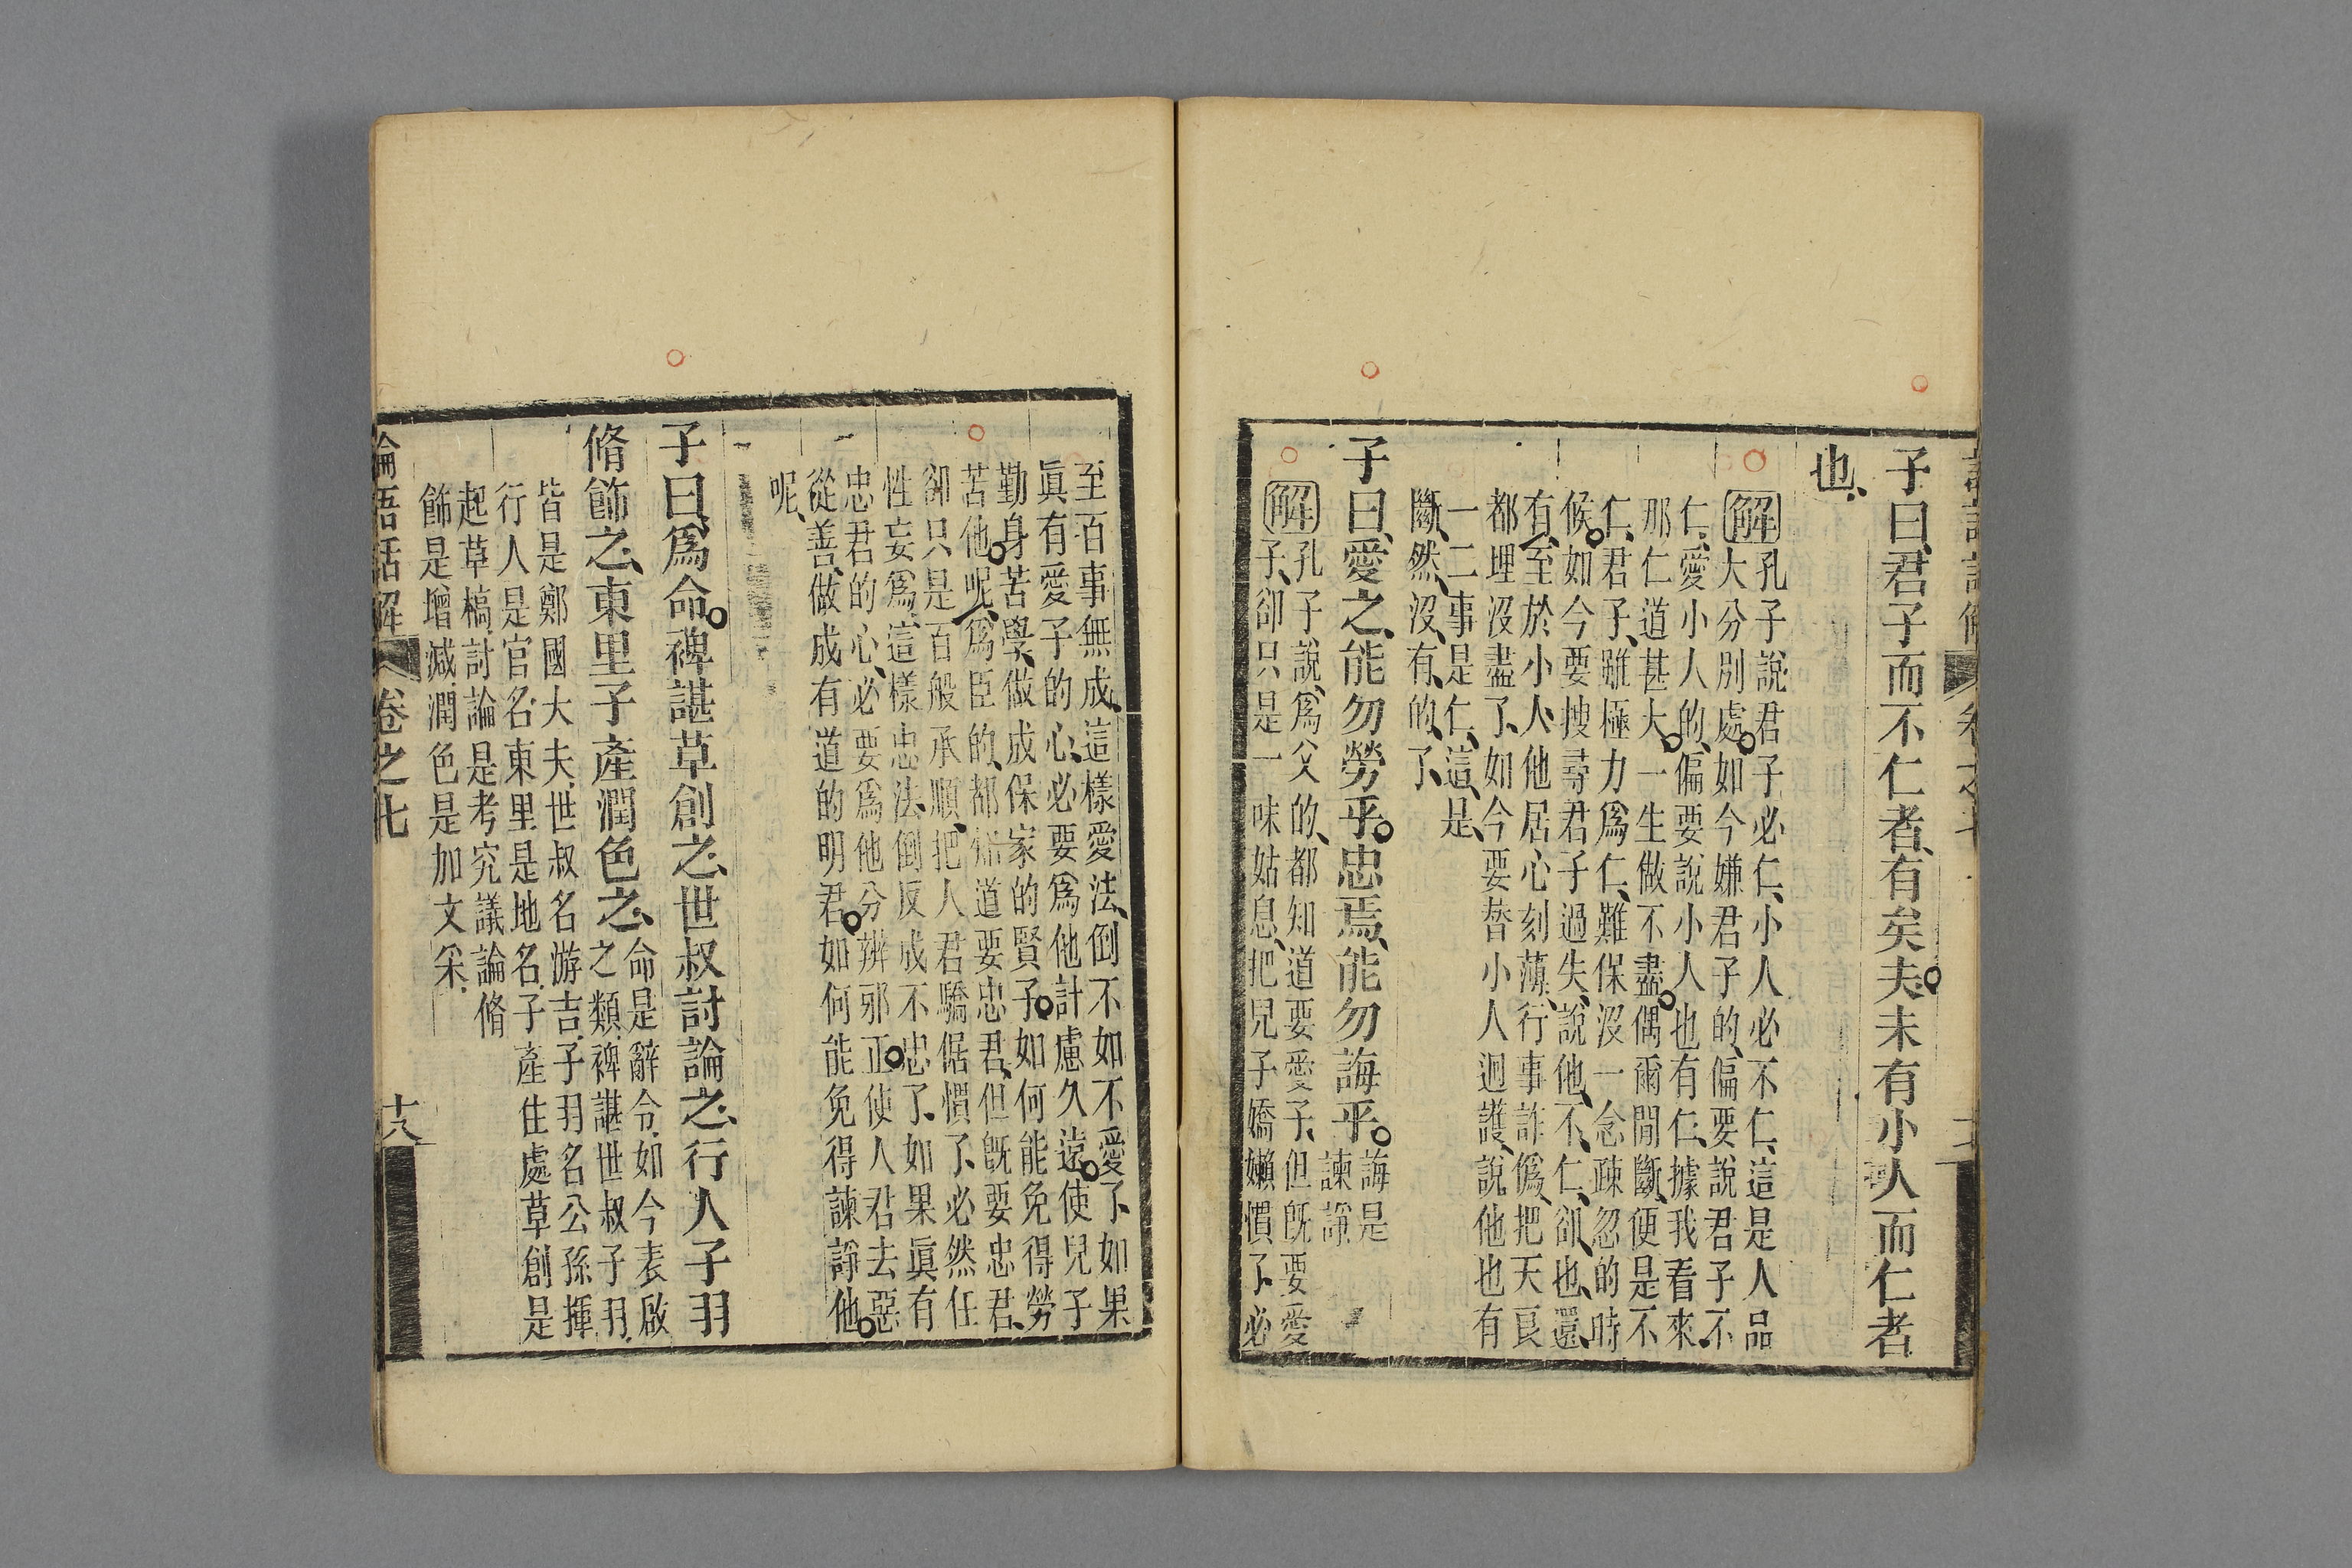 子曰、君子而不仁者、有矣夫。未有小人而仁者
也、
解孔子說君子必仁、小人必不仁、這是人品
大分別處。如今嫌君子的、偏要說君子不
仁、愛小人的、偏要說小人也有仁、據我看來、
那仁道甚大。一生做不盡。偶爾間斷、便是不
仁、君子、雖極力爲仁、難保沒一念疎忽的時
候。如今要搜尋君子過失、說他、不、仁、卻、也、還、
有、至於小人、他居心刻薄、行事詐僞、把天良
都埋沒盡了、如今要替小人迴護、說他也有
一二事是仁、這、是、
斷、然、沒、有、的、了、
子曰、愛之、能勿勞乎。忠焉、能勿誨乎。
誨是
諫諍
解孔子說、爲父的、都知道要愛子、但旣要愛
子、卻只是一味姑息、把兒子嬌嬾慣了、必
至百事無成、這樣愛法、倒不如不愛了、如果
眞有愛子的心、必要爲他計慮久遠。使兒子
勤身苦學、做成保家的賢子。如何能免得勞
苦他。呢、爲臣的、都知道要忠君、但旣要忠君、
卻只是百般承順、把人君驕倨慣了、必然任
性妄爲、這樣忠法、倒反成不忠了、如果眞有
忠君的心、必要爲他分辨邪正。使人君去惡
從善、做成有道的明君。如何能免得諫諍他。
呢、
子曰、爲命。裨諶草創之、世叔討論之、行人子羽
脩飾之、東里子產潤色之、
命是辭令、如今表啟
之類、裨諶世叔子羽、
皆是鄭國大夫、世叔名游吉、子羽名公孫揮
行人是官名、東里是地名、子產住處草創是
起草槁、討論是考究議論脩
飾是增減、潤色是加文采、
論語話解 卷之七 十八